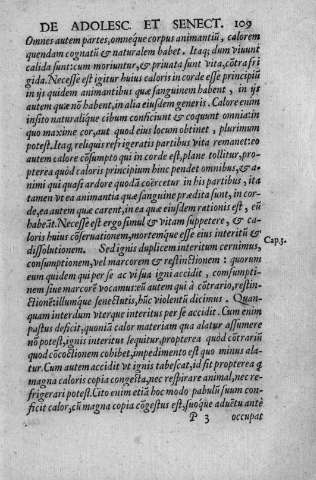 DE ADOLESC. ET SENECT. 109
Omnes autem partes, omneque corpus animantiũ, calorem
quendam cognatũ & naturalem habet. Itaq; dum viuunt
calida sunt: cum moriuntur, & priuata sunt vita, cõtra fri
gida. Necesse est igitur huius caloris in corde esse principiũ
in ijs quidem animantibus quæ sanguinem habent, in ijs
autem quæ nõ habent, in alia eiusdem generis. Calore enim
insito naturalique cibum conficiunt & coquunt omnia: in
quo maxime cor, aut quod eius locum obtinet, plurimum
potest. Itaq; reliquis refrigeratis partibus vita remanet: eo
autem calore cõsumpto qui in corde est, plane tollitur, pro-
pterea quòd caloris principium hinc pendet omnibus, & a-
nimi qui quasi ardore quodã coërcetur in his partibus, ita
tamen vt ea animantia quæ sanguine prædita sunt, in cor-
de, ea autem quæ carent, in ea quæ eiusdem rationis est, eũ
habeãt. Necesse est ergo simul & vitam suppetere, & ca-
loris huius cõseruationem, mortemque esse eius interitũ &
dissolutionem. Sed ignis duplicem interitum cernimus,
Cap. 3.
consumptionem, vel marcorem & restinctionem: quorum
eum quidem qui per se ac vi sua igni accidit, consumptio-
nem siue marcorẽ vocamus: eũ autem qui à cõtrario, restin-
ctionẽ: illumque senectutis, hũc violentũ dicimus. Quan-
quam interdum vterque interitus per se accidit. Cum enim
pastus deficit, quoniã calor materiam qua alatur assumere
nõ potest, ignis interitus sequitur, propterea quòd cõtrariũ
quod cõcoctionem cohibet, impedimento est quo minus ala-
tur. Cum autem accidit vt ignis tabescat, id fit propterea q
magna caloris copia congesta, nec respirare animal, nec re-
frigerari potest. Cito enim etiã hoc modo pabulũ suum con-
ficit calor, cũ magna copia cõgestus est, suoque aduẽtu antè
P 3 occupat